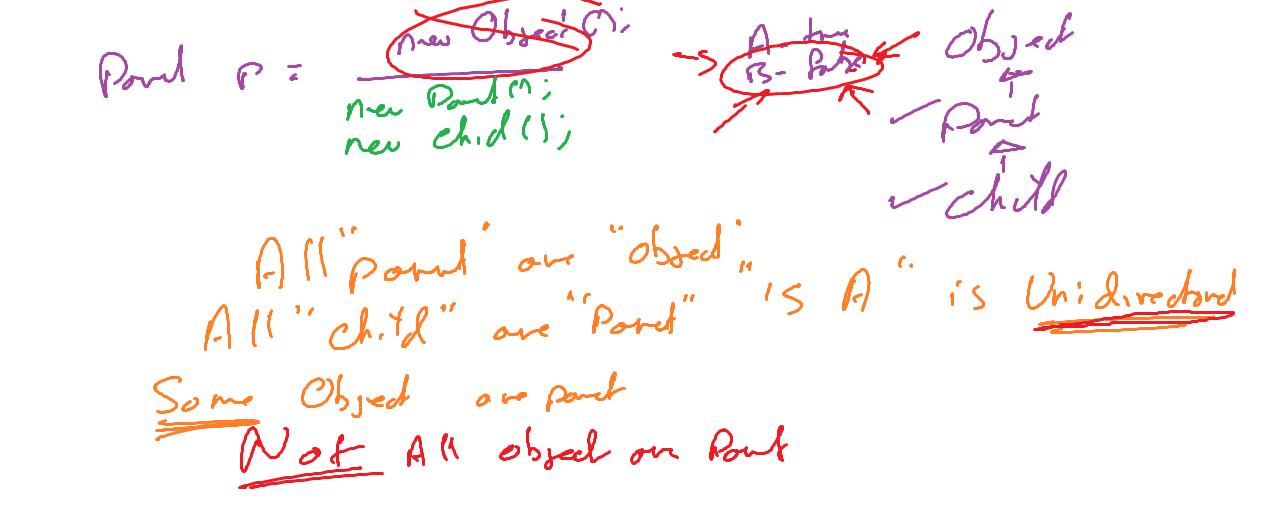 Parent P =
new Object();
new Parent();
new Child();
A - true
B - False
Object
Parent
Child
All "parent" are "object"
All "child" are "Parent"
"is A" is Unidirectional
Some Object are parent
Not All object are Parent